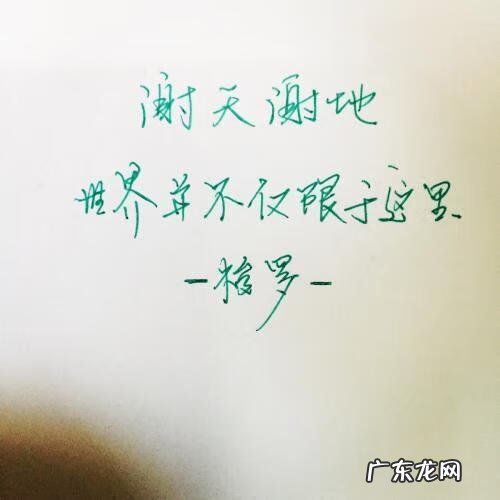 谢天谢地
世界并不仅限于这里
-梭罗-
广东龙网